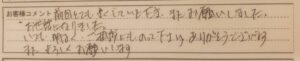 お客様コメント 前回とても良くしていただき、またお願いしました。
お世話になりました。
いつも明るく、ご相談にものって下さり、ありがとうございます
また、よろしくお願いします